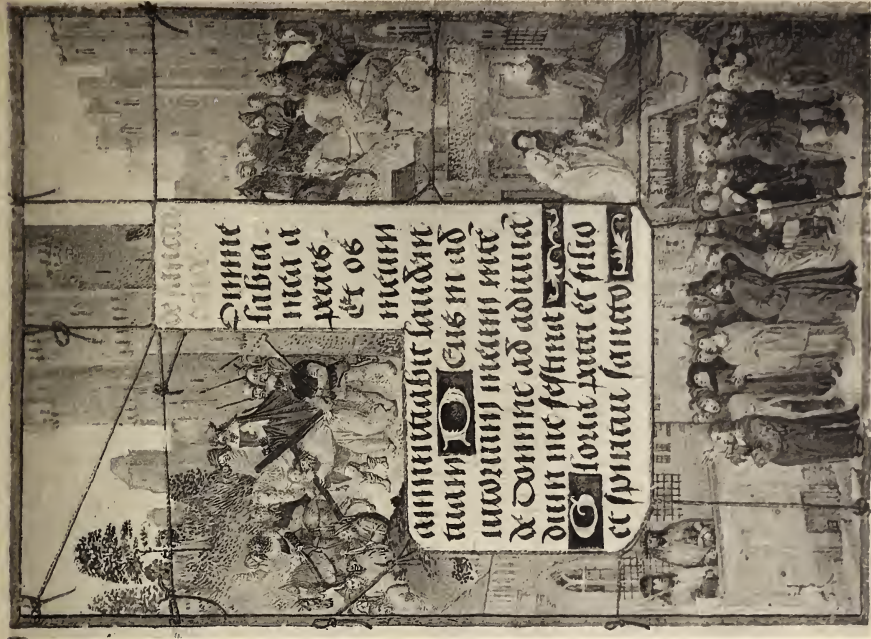 Domine
labia
mea a
peries.
Et os
meum
annuntiabit laudem
tuam Deus in ad
iutorium meum intē
de Domine ad adiuuā
dum me festina
Gloria patri et filio
et spiritui sancto